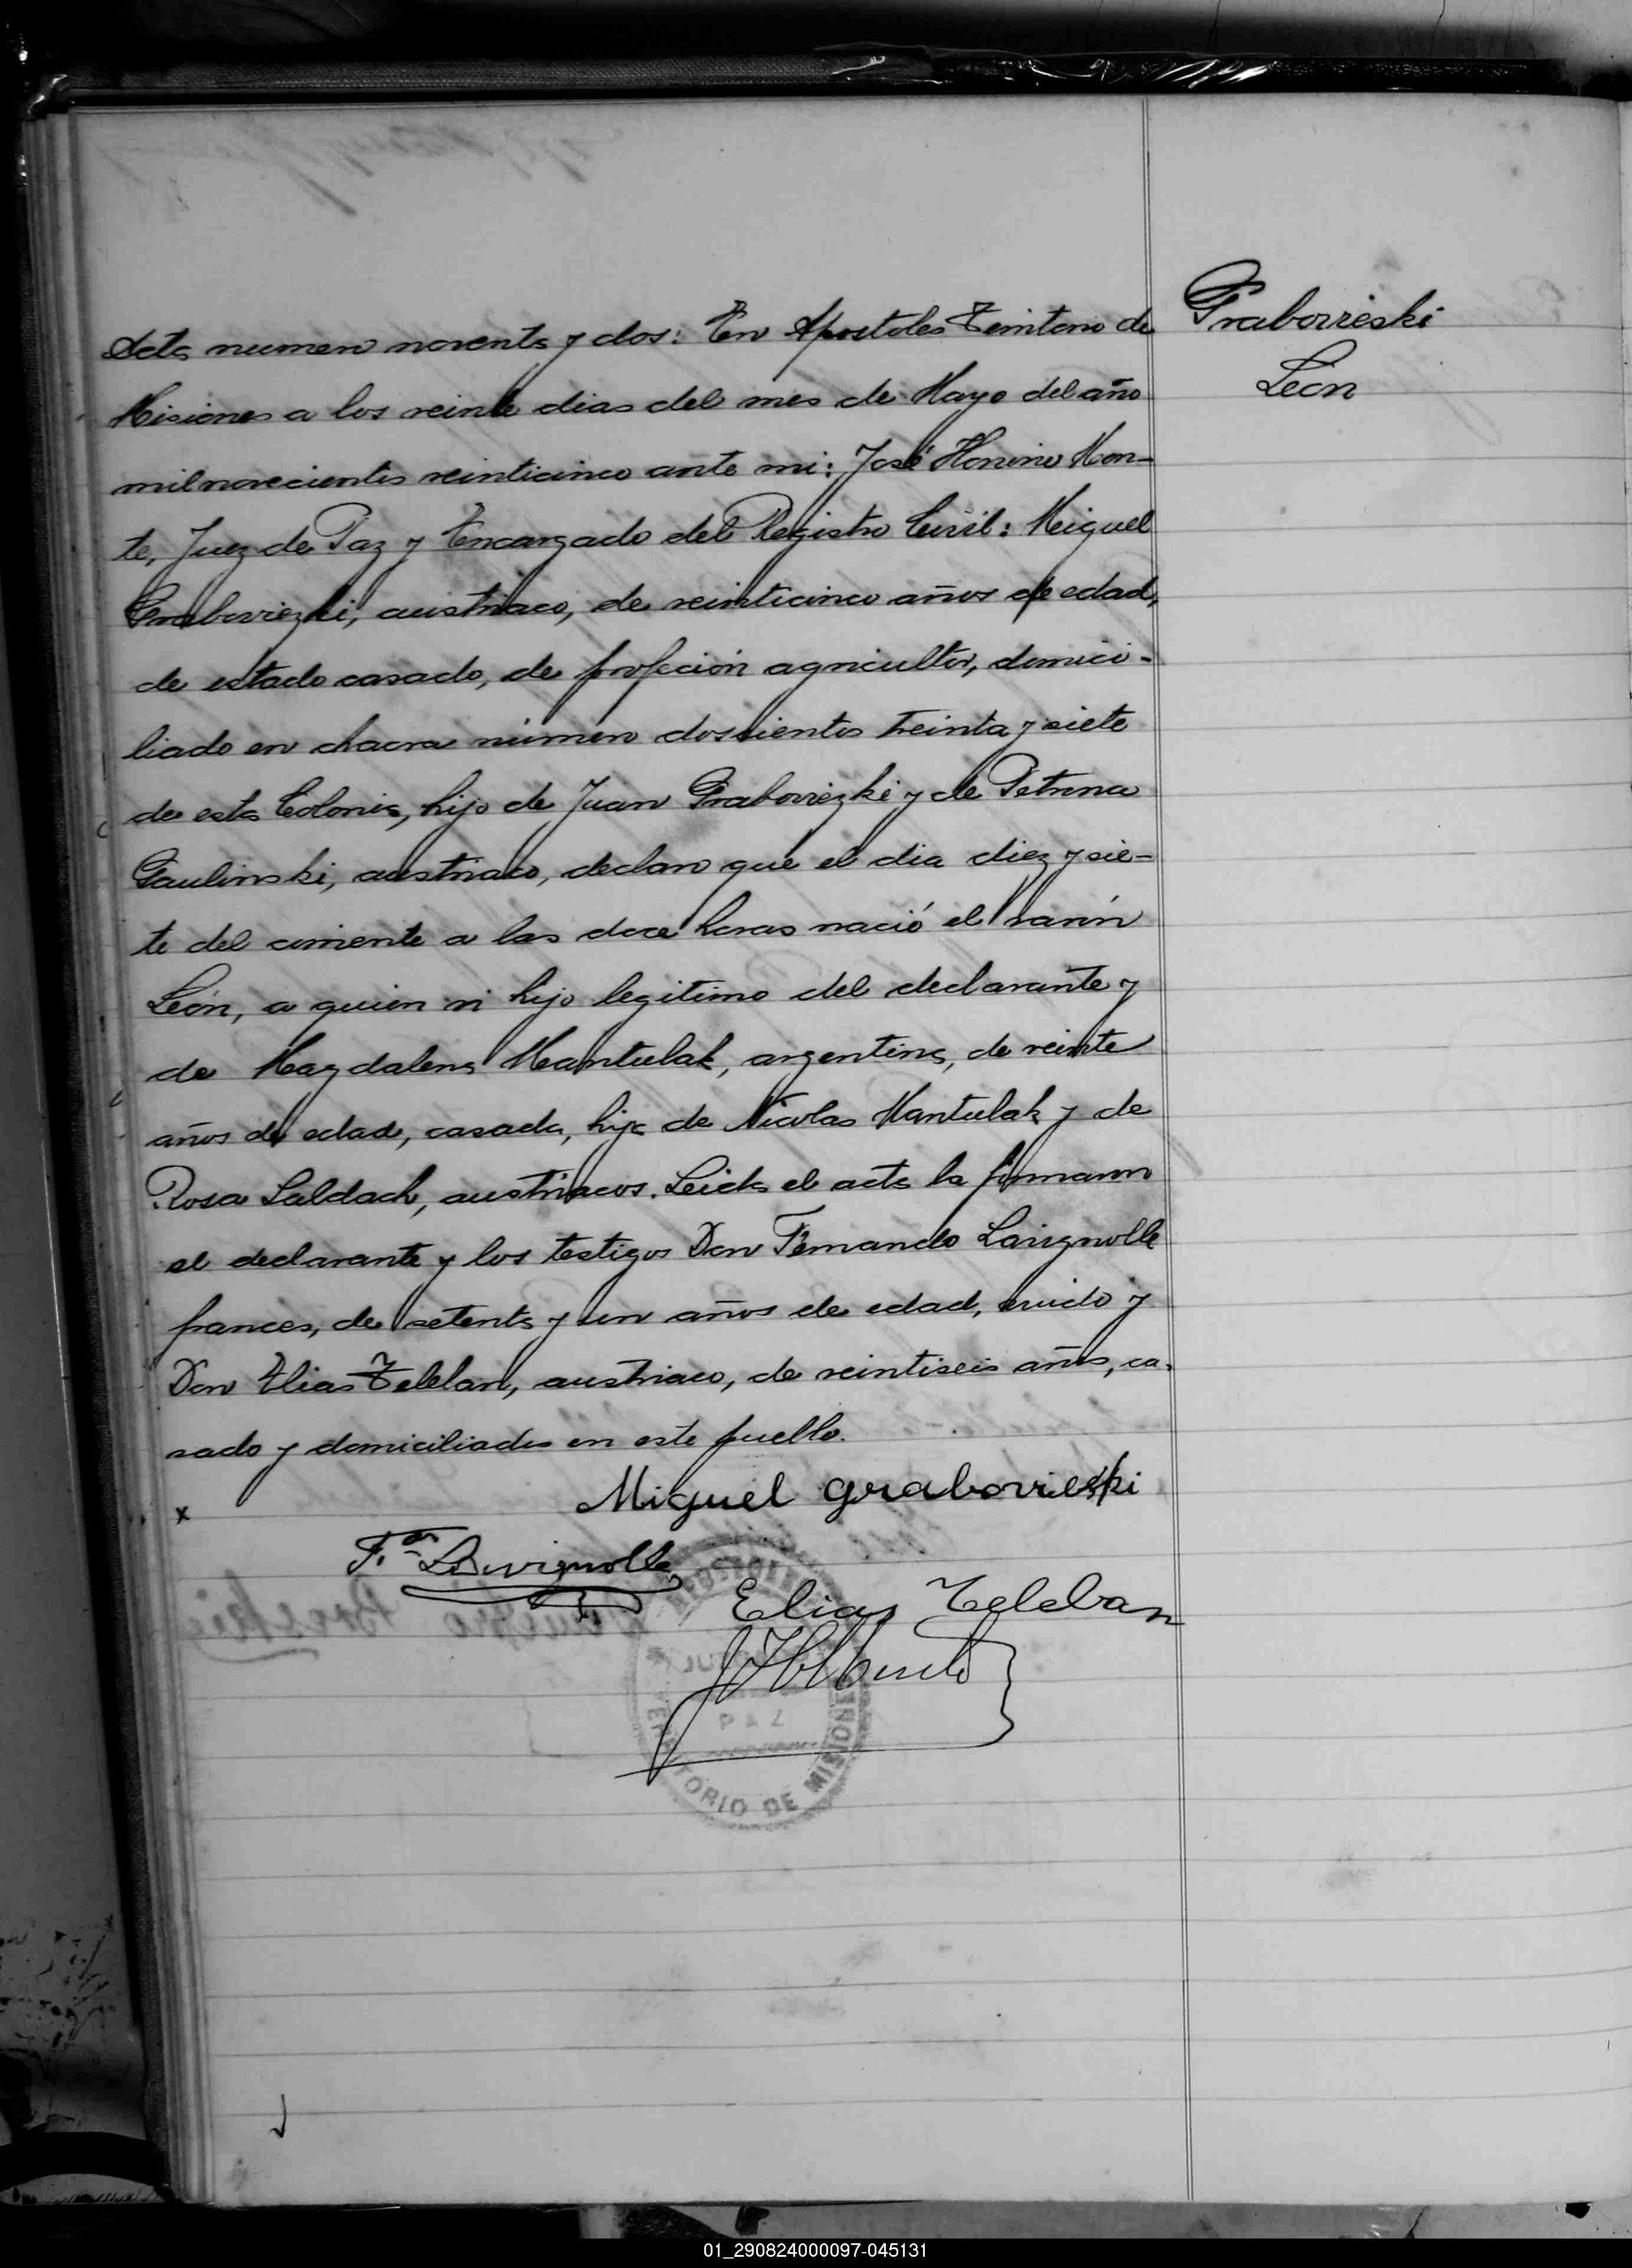 Grabovieski
León
Acta numero noventa y dos: En Apostoles Territorio de
Misiones a los veinte dias del mes de Mayo del año
milnovecientos veinticinco ante mi: José Honorio Mon-
te, Juez de Paz y Encargado del Registro Civil: Miguel
Graboviezki, austriaco, de veinticinco años de edad,
de estado casado, de profeción agricultor, domici-
liado en chacra número doscientos treinta y siete
de esta Colonia, hijo de Juan Graboviezki y de Petrona
Paulinski, austriaco, declaro que el dia diez y sie-
te del corriente a las doce horas nació el varón
León, a quien vi hijo legitimo del declarante y
de Magdalena Mantulak, argentina, de veinte
años de edad, casada, hija de Nicolas Mantulak y de
Rosa Saldach, austriacos. Leida el acta la firmaron
el declarante y los testigos Don Fernando Lavignolle
frances, de setenta y un años de edad, viudo y
Don Elias Teleban, austriaco, de veintiseis años, ca-
sado y domiciliados en este pueblo.
x
Miguel graborieski
F. Lavignolle
Elias Teleban
PAZ
TERRITORIO DE MISIONES
01_290824000097-045131